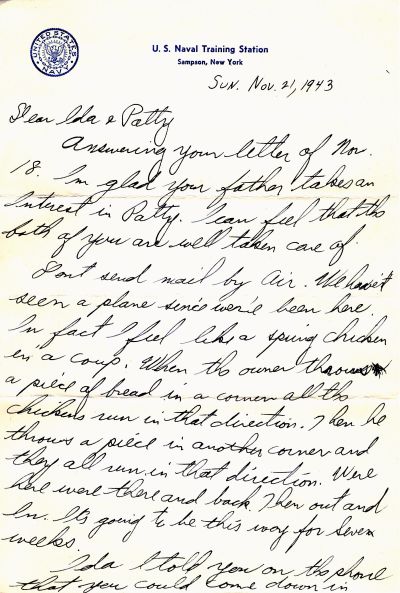 UNITED STATES NAVY
U. S. Naval Training Station
Sampson, New York
Sun. Nov. 21, 1943
Dear Ida & Patty
Answering your letter of Nov.
18. Im glad your father takes an
interest in Patty. I can feel that ths
both of you are well taken care of.
Dont send mail by Air. We havent
seen a plane since we're been here.
In fact I feel like a spring chicken
in a coup. When ths owner throws
a piece of bread in a corner all ths
chickens run in that direction. Then he
throws a piece in another corner and
they all run in that direction. Were
here were there and back. Then out and
In. Its going to be this way for seven
weeks.
Ida I told you on ths phone
that you could come down in